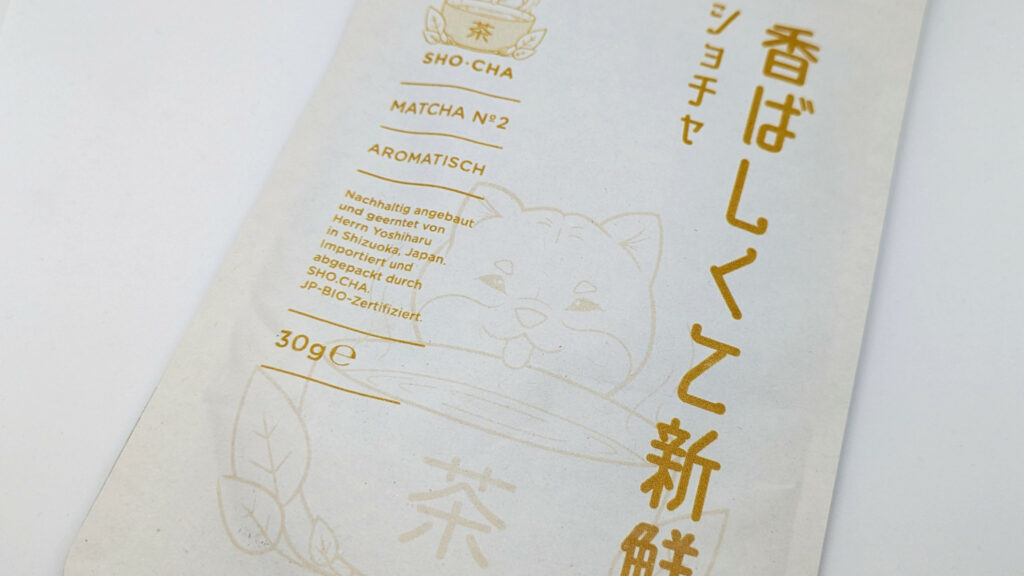 茶
SHO·CHA
MATCHA Nº2
AROMATISCH
Nachhaltig angebaut
und geerntet von
Herrn Yoshiharu
in Shizuoka, Japan.
Importiert und
abgepackt durch
SHO.CHA.
JP-BIO-Zertifiziert.
30g℮
香ばしくて新鮮
ショチャ
茶